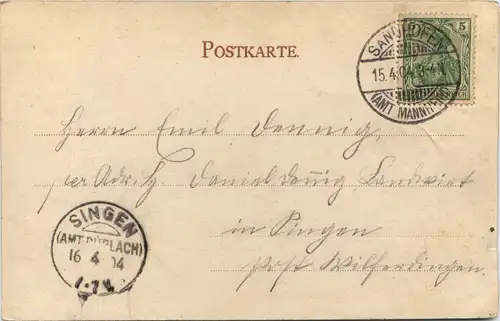 5
POSTKARTE.
SANDHOFEN
15.4.04
(AMT MANNHEIM)
Herrn Emil Dennig,
per Adr. H. Daniel Dennig, Landwirt
in Singen
SINGEN
(AMT DURLACH)
16 4 04
Post Wilferdingen.